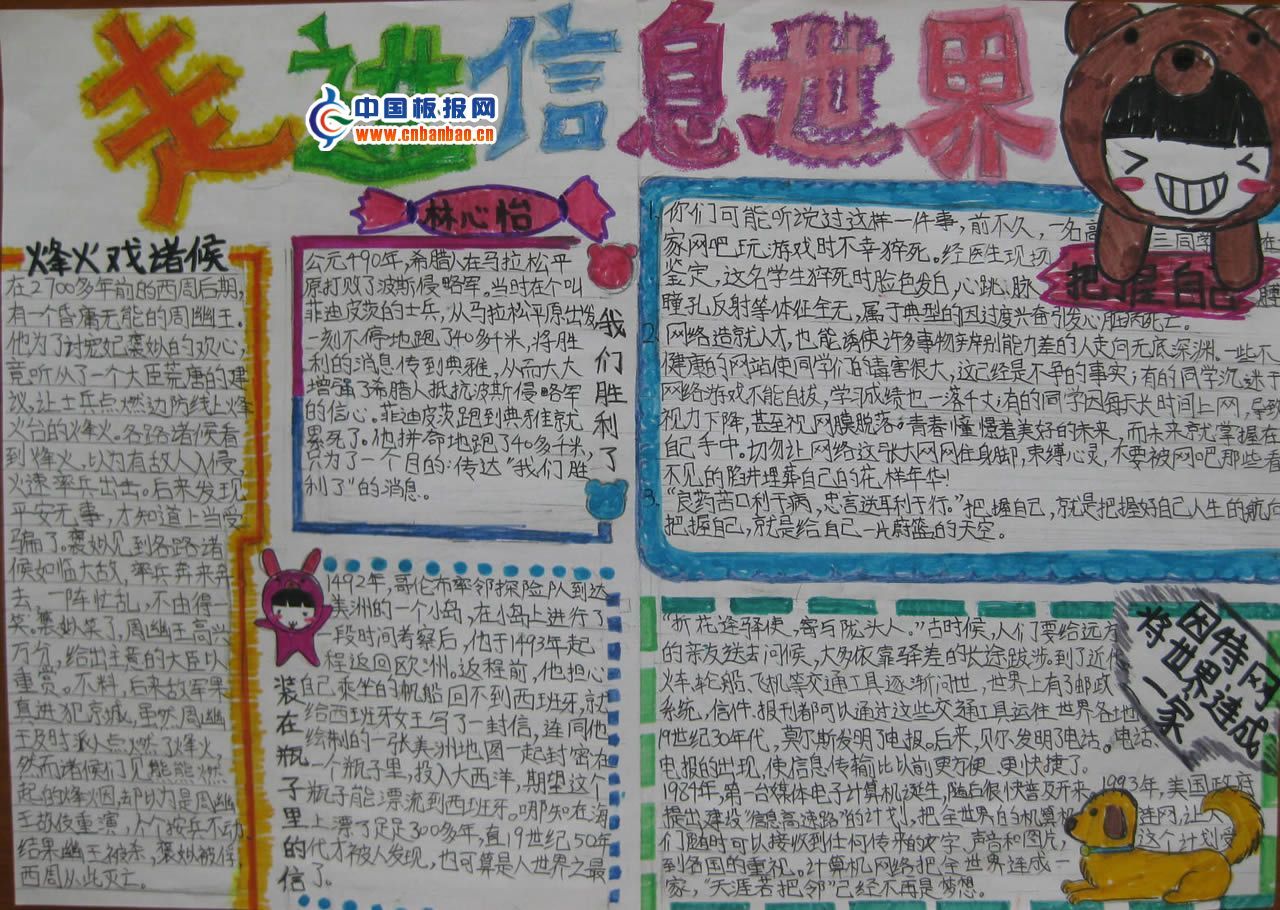 走进信息世界
中国板报网
www.cnbanbao.cn
林心怡
烽火戏诸候
在2700多年前的西周后期,
有一个昏庸无能的周幽王。
他为了讨宠妃褒姒的欢心,
竟听从了一个大臣荒唐的建
议,让士兵点燃边防线上烽
火台的烽火。各路诸候看
到烽火,以为有敌人入侵,
火速率兵出击。后来发现
平安无事,才知道上当受
骗了。褒姒见到各路诸
候如临大敌,率兵奔来奔
去,一阵忙乱,不由得一
笑。褒姒笑了,周幽王高兴
万分,给出主意的大臣以
重赏。不料,后来敌军果
真进犯京城,虽然周幽
王及时派人点燃了烽火,
然而诸候们见熊熊燃
起的烽火烟,却以为是周幽
王故伎重演,个个按兵不动
结果幽王被杀,褒姒被俘,
西周从此灭亡。
我们胜利了
公元490年,希腊人在马拉松平
原打败了波斯侵略军。当时在个叫
菲迪皮茨的士兵,从马拉松平原出发
一刻不停地跑了40多千米,将胜
利的消息传到典雅,从而大大
增强了希腊人抵抗波斯侵略军
的信心。菲迪皮茨跑到典雅就
累死了。他拼命地跑了40多千米,
只为了一个目的:传达“我们胜
利了”的消息。
装在瓶子里的信
1492年,哥伦布率邻探险队到达
美洲的一个小岛,在小岛上进行了
一段时间考察后,他于1493年起
程返回欧洲。返程前,他担心
自己乘坐的帆船回不到西班牙,就
给西班牙女王写了一封信,连同他
绘制的一张美洲地图一起封密在
一个瓶子里,投入大西洋,期望这个
瓶子能漂流到西班牙。哪知在海
上漂了足足300多年,直19世纪50年
代才被人发现,也可算是人世界之最
了。
把握自己
1.你们可能听说过这样一件事,前不久,一名高三同学在
家网吧玩游戏时不幸猝死。经医生现场
鉴定,这名学生猝死时脸色发白,心跳、脉
瞳孔反射等体征全无,属于典型的因过度兴奋引发心脏病死亡。
2.网络造就人才,也能诱使许多事物辨别能力差的人走向无底深渊。一些不
健康的网站使同学们的毒害很大,这已经是不争的事实;有的同学沉迷于
网络游戏不能自拔,学习成绩也一落千丈;有的同学因每天长时间上网,导致
视力下降,甚至视网膜脱落。青春憧憬着美好的未来,而未来就掌握在
自己手中。切勿让网络这张大网网住身脚,束缚心灵,不要被网吧那些看
不见的陷井埋葬自己的花样年华!
3.“良药苦口利于病,忠言逆耳利于行。”把握自己,就是把握好自己人生的航向
把握自己,就是给自己一片蔚篮的天空。
因特网
将世界连成
一家
“折花逢驿使,寄与陇头人。”古时候,人们要给远方
的亲友送去问候,大多依靠驿差的长途跋涉。到了近代
火车、轮船、飞机等交通工具逐渐问世,世界上有了邮政
系统,信件、报刊都可以通过这些交通工具运往世界各地
19世纪30年代,莫尔斯发明了电报。后来,贝尔发明了电话。电话、
电报的出现,使信息传输比以前更方便、更快捷了。
1984年,第一台媒体电子计算机诞生,随后很快普及开来。1993年,美国政府
提出建设“信息高速路”的计划,把全世界的计算机连网,让人
们随时可以接收到任何传来的文字、声音和图片,这个计划受
到各国的重视。计算机网络把全世界连成一
家,“天涯若把邻”已经不再是梦想。